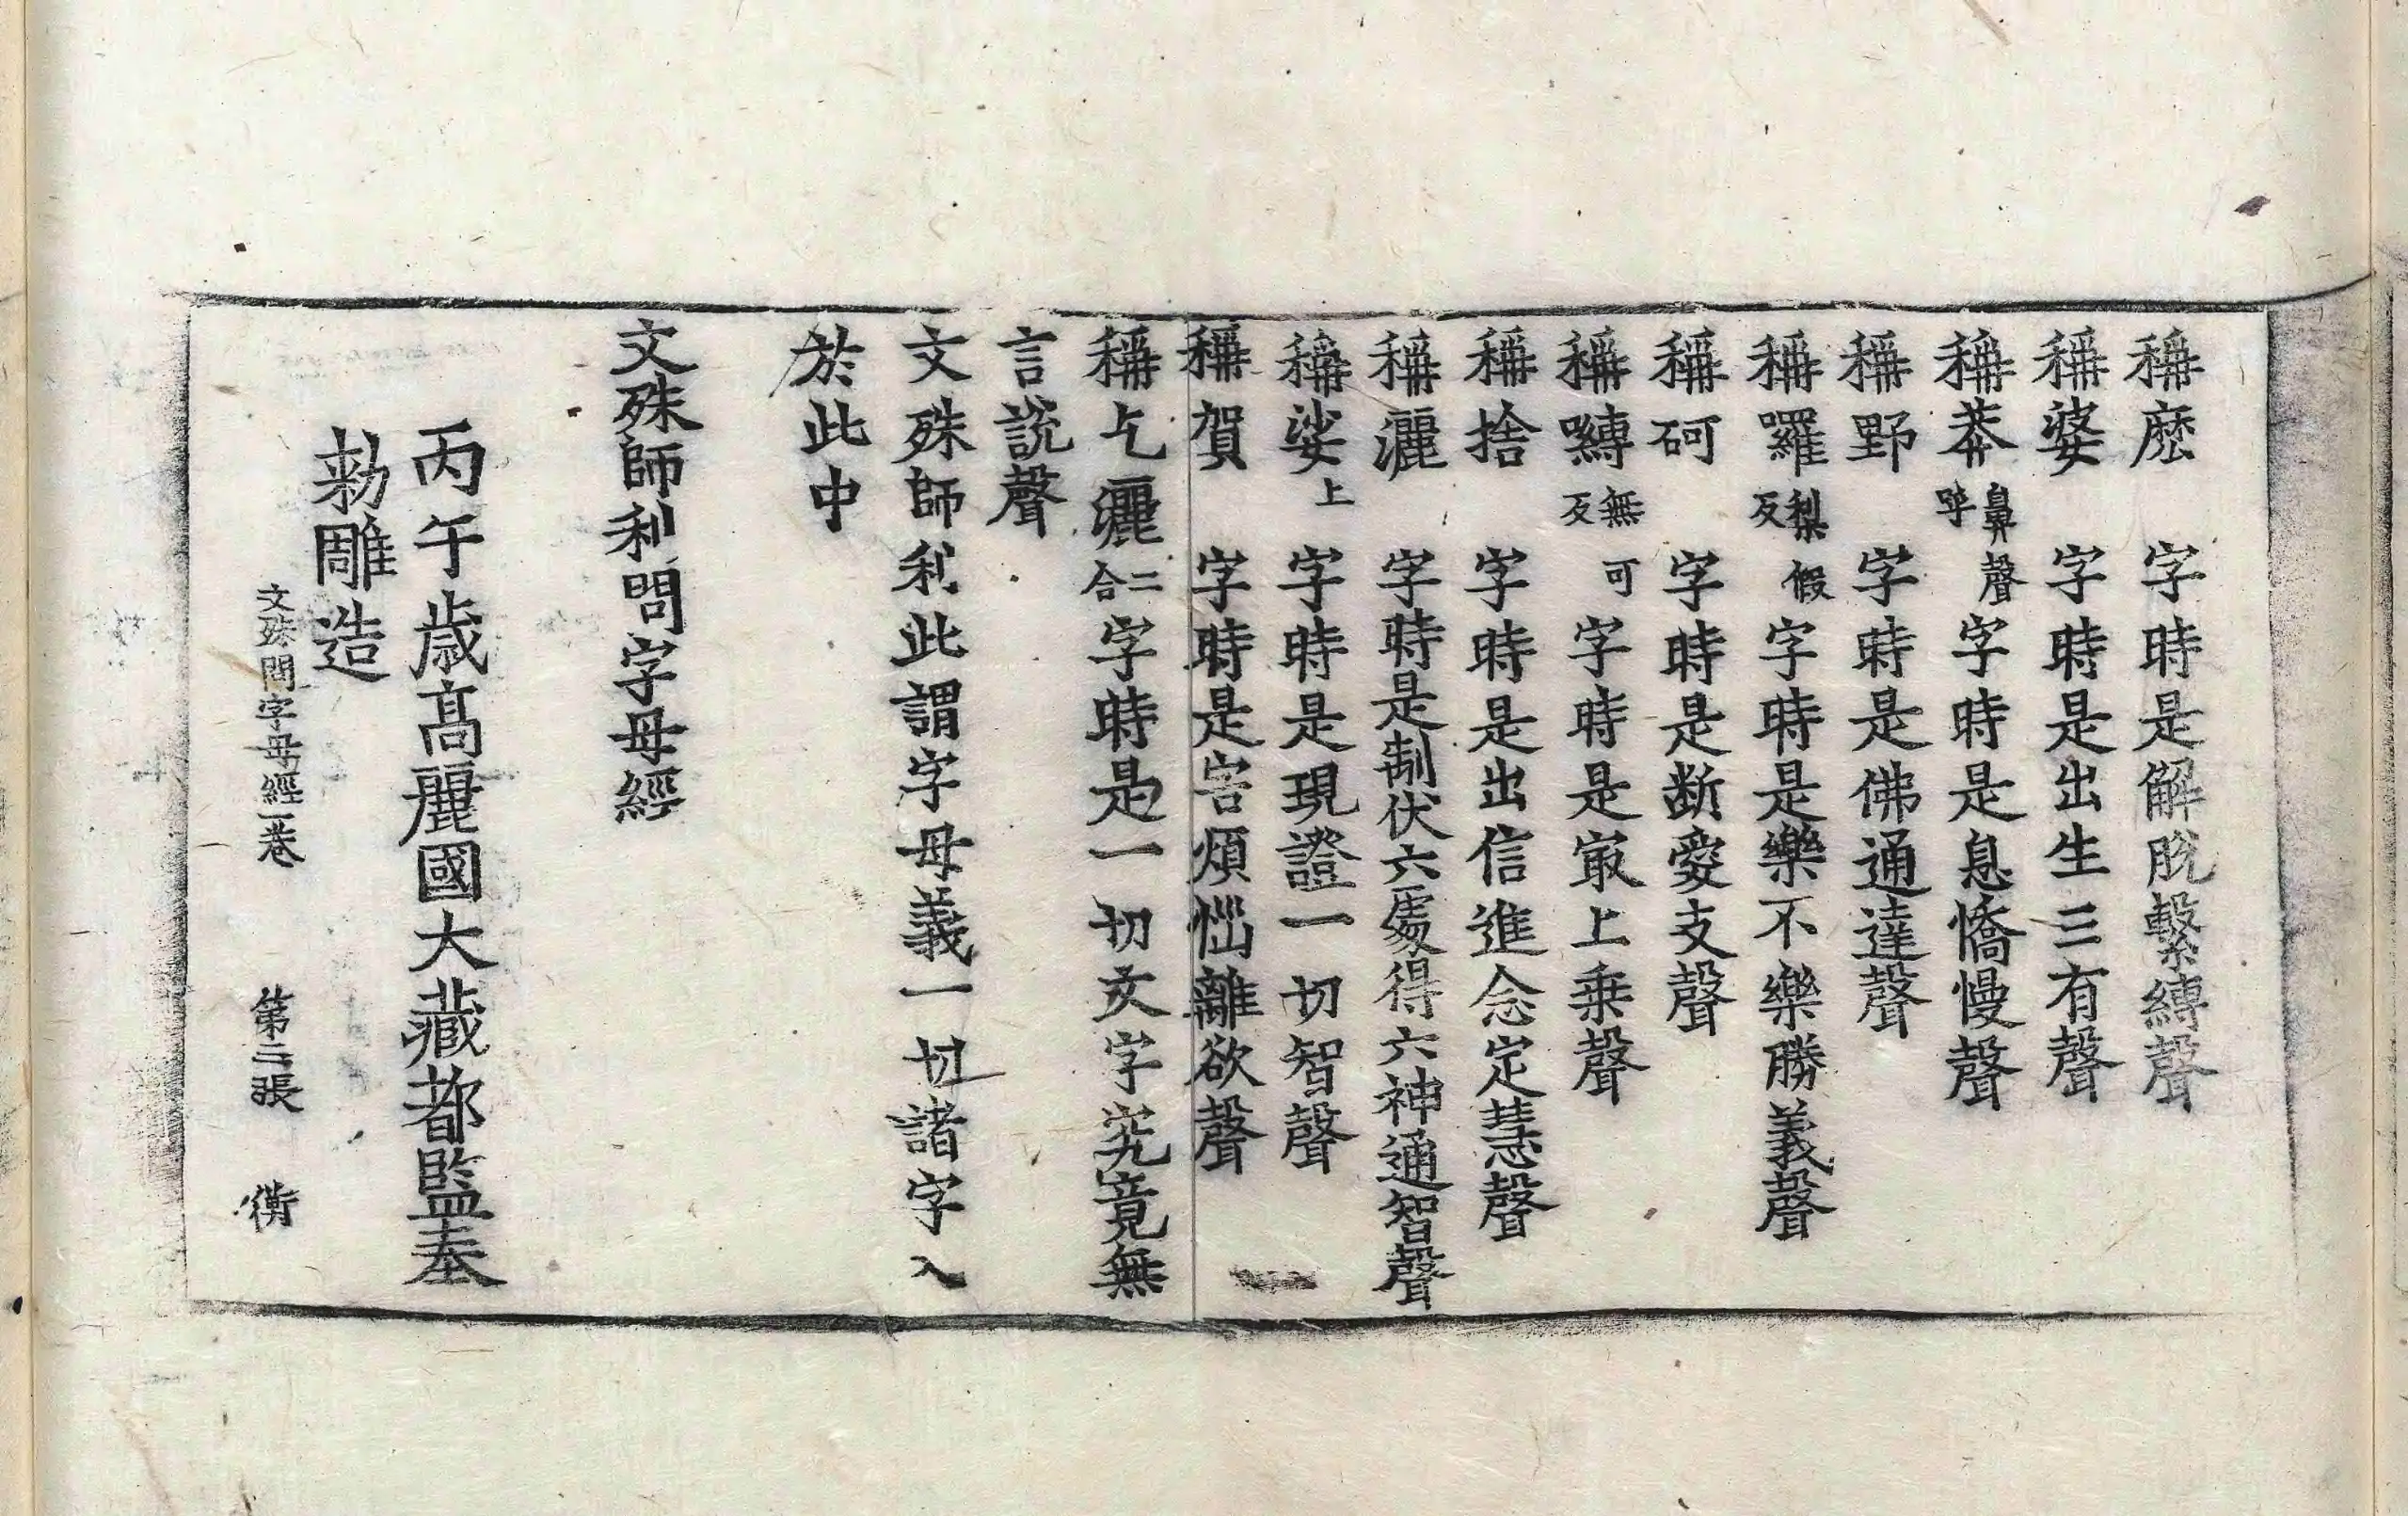 稱麽字時是解脫繫縛聲
稱婆字時是出生三有聲
稱莽鼻聲呼字時是息憍慢聲
稱野字時是佛通達聲
稱囉梨假反字時是樂不樂勝義聲
稱砢字時是斷愛支聲
稱嚩無可反字時是㝡上乗聲
稱捨字時是出信進念定慧聲
稱灑字時是制伏六處得六神通智聲
稱娑上字時是現證一切智聲
稱賀字時是害煩惱離欲聲
稱乞灑二合字時是一切文字究竟無
言說聲
文殊師利此謂字母義一切諸字入
於此中
文殊師利問字母經
丙午歳髙麗國大藏都監奉
勅雕造
文殊問字母經一卷 第三張 衡